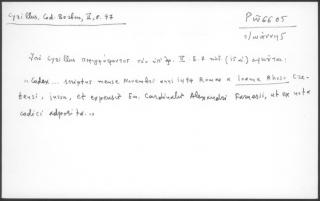 Cyrillus, Cod. Bodon, II, S. 97
Ρω6605
Ἰωάννης
Ὑπὸ Cyrillus περιγράφεται τὸν ὑπ' ἀρ. II. S. 7 καὶ (15 αἰ)
„Codex... scriptus mense Novembri anni 1494 Romae a Ioanne Ahoso Cre-
tensi, iussu, et expensis Em. Cardinalis Alexandri Farnesii, ut ex nota
codici apposita..."